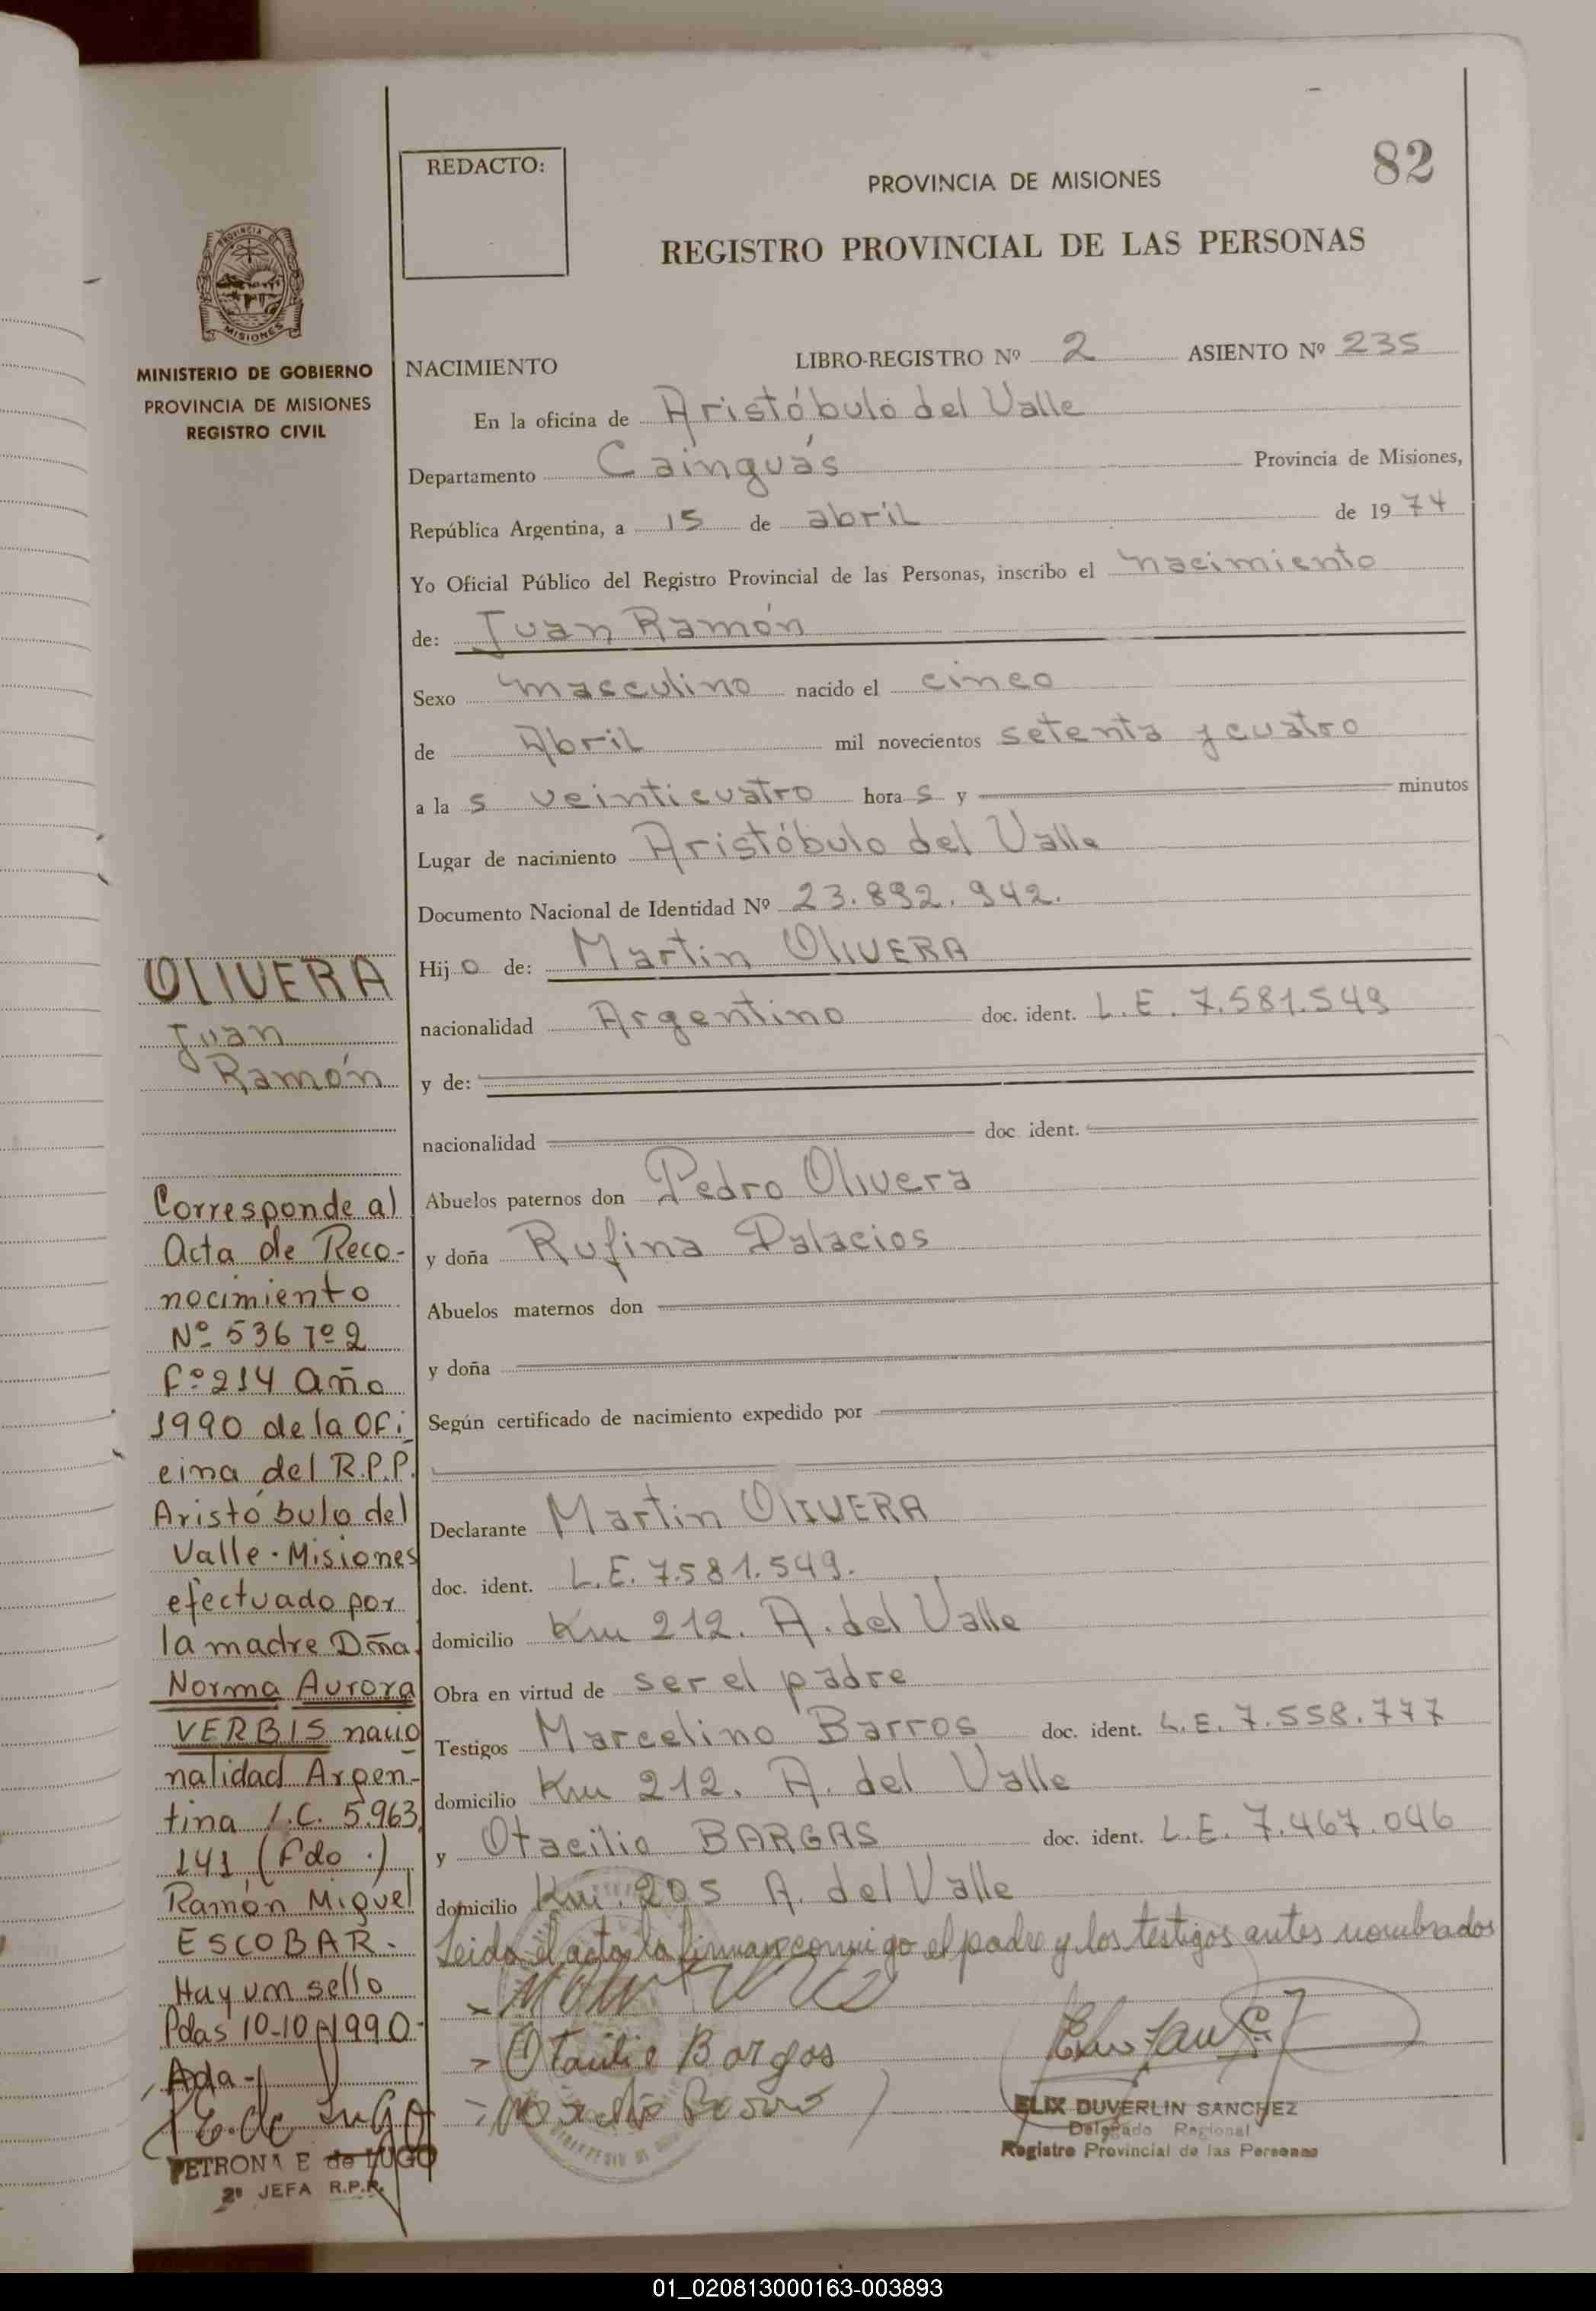 82
REDACTO:
PROVINCIA DE MISIONES
REGISTRO PROVINCIAL DE LAS PERSONAS
PROVINCIA DE
MISIONES
MINISTERIO DE GOBIERNO
PROVINCIA DE MISIONES
REGISTRO CIVIL
NACIMIENTO LIBRO-REGISTRO Nº 2 ASIENTO Nº 235
En la oficina de Aristóbulo del Valle
Departamento Cainguás Provincia de Misiones,
República Argentina, a 15 de abril de 1974
Yo Oficial Público del Registro Provincial de las Personas, inscribo el nacimiento
de: Juan Ramón
Sexo masculino nacido el cinco
de Abril mil novecientos setenta y cuatro
a la s veinticuatro hora s y minutos
Lugar de nacimiento Aristóbulo del Valle
Documento Nacional de Identidad Nº 23.892.942.
Hijo de: Martin OLIVERA
nacionalidad Argentino doc. ident. L.E. 7.581.549
y de:
nacionalidad doc. ident.
Abuelos paternos don Pedro Olivera
y doña Rufina Palacios
Abuelos maternos don
y doña
Según certificado de nacimiento expedido por
Declarante Martin OLIVERA
doc. ident. L.E. 7.581.549.
domicilio Km 212. A. del Valle
Obra en virtud de ser el padre
Testigos Marcelino Barros doc. ident. L.E. 7.558.777
domicilio Km 212. A. del Valle
y Otacilio BARGAS doc. ident. L.E. 7.467.046
domicilio Km. 205 A. del Valle
Leida el acta la firman conmigo el padre y los testigos antes nombrados
Otacilio Bargas
ELIX DUVERLIN SANCHEZ
Delegado Regional
Registro Provincial de las Personas
OLIVERA
Juan
Ramón
Corresponde al
Acta de Reco-
nocimiento
Nº 536 Tº 2
Fº 214 Año
1990 de la Ofi
cina del R.P.P.
Aristóbulo del
Valle - Misiones
efectuado por
la madre Dña.
Norma Aurora
VERBIS nacio
nalidad Argen-
tina L.C. 5.963.
141 (Fdo.)
Ramón Miguel
ESCOBAR.-
Hay un sello
Pdas 10-10-1990-
PETRONA E de LUGO
2º JEFA R.P.P.
01_020813000163-003893